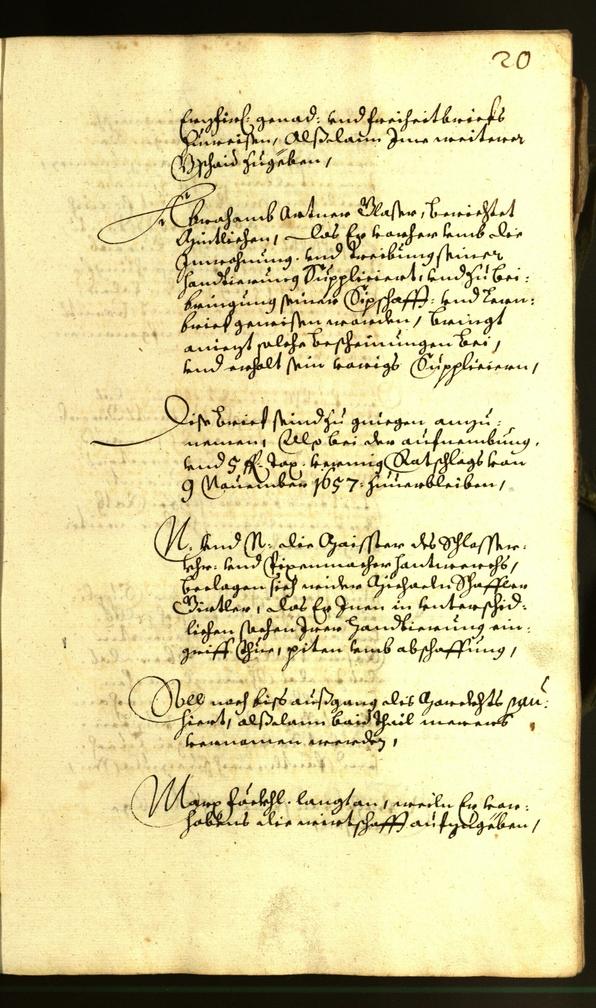 20
Erzfirst: genad: und freiheitbriefs
Zuweisen, Alßdann Ime weiterer
Bschaid zugeben,
Abrahamb Artner Glaser, berichtet
Güetlichen, das Er vorher umb die
Inwohnung und treibung seiner
Handtierung Suppliciert, und zu bei:
bringung seiner Sipschafft: und Lern:
brief gewisen worden, bringt
aniezt solche bescheinungen bei,
und erholt sein vorigs Supplicieren,
Dise brief seind zu genüegen anzu:
nemen, bei der aufnembung,
und 5 ff. Tax vermig Ratschlags von
9 November 1657: zuverbleiben,
N: und N: die Maisster des Schlosser:
Uhr: und Pixenmacher Hantwerchs,
beclagen sich wider Michaeln Schaffler
Girtler, das Er Inen in unterschid:
lichen sachen Irer Handtierung ein:
griff thue, piten umb abschaffung,
Soll noch biss außgang dis Marckhts
hiert, alßdann baid thail merers
vernomen werden,
Marx langt an, weiln Er vor:
habens die wirtschafft aufzugeben,